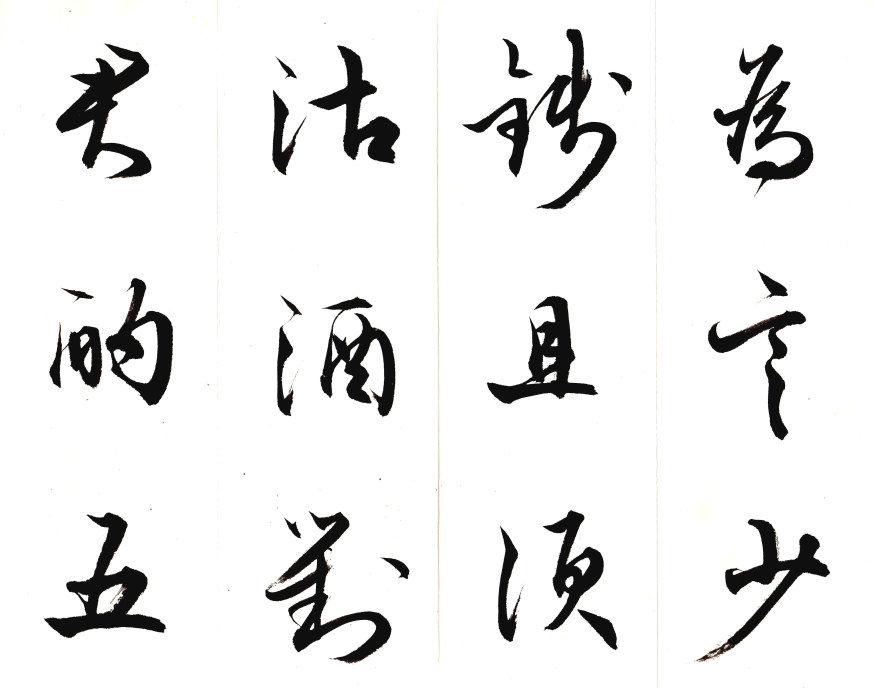 為言少
錢且須
沽酒對
君酌五